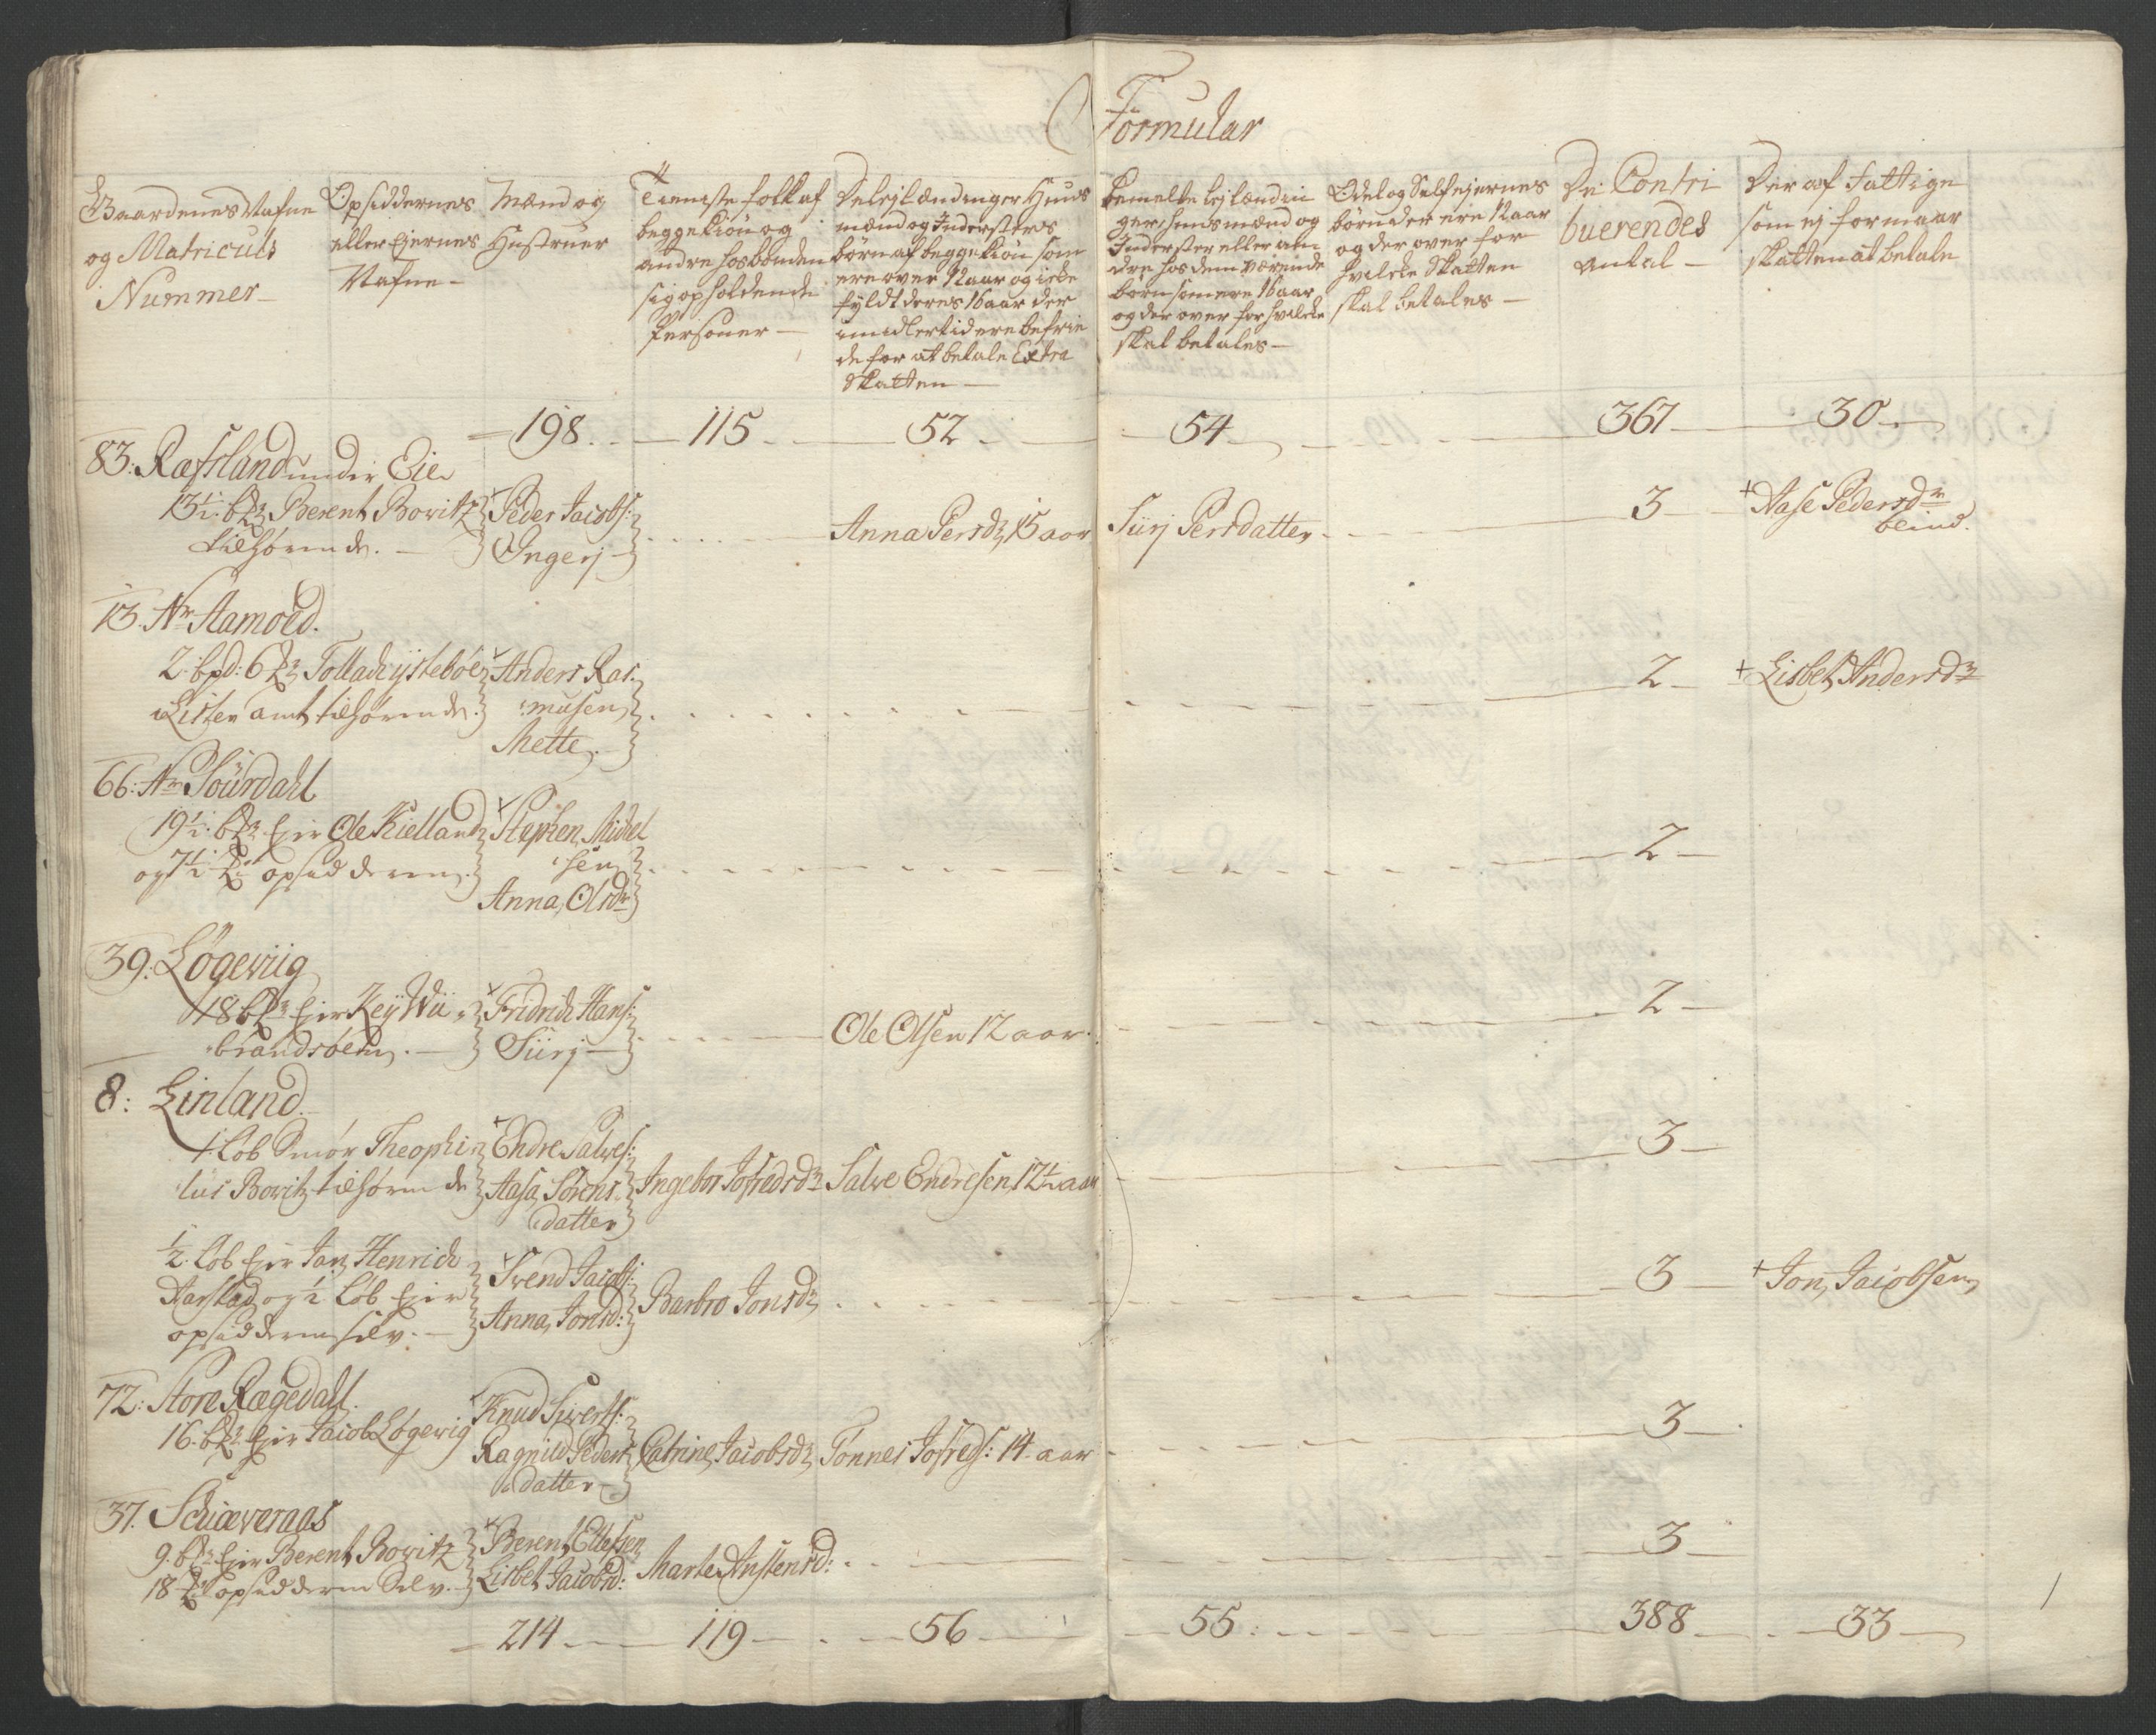 Formular
Gaardenes Nafne
og Matriculs
Nummer
Opsiddernes
eller Ejernes
Nafne
Mænd og
Hustruer
Tieniste folk af
begge Kiøn og
andre hos bonden
sig opholdende
Personer
De lejlændinger Huus
mænd og Inderstes
børn af begge Kiøn som
ere over 12 aar og icke
fyldt deres 16 aar der
imidlertid ere befrie
de for at betale Extra
Skatten
bemelte lejlændin
ger, huusmænd og
Inderster eller an
dre hos dem værende
børn som ere 16 aar
og der over for hvilcke
skal betales
Odel og Selfejernes
børn der ere 12 aar
og der over for
hvilcke Skatten
skal betales
De Contri
buerendes
Antal
Der af Fattige
som ej formaar
skatten at betale
198 115 52 54 367 30
83. Ræfsland under Eie
13½ bpd Berent Bowitz
tilhørende.
Peder Jacobs:
Ingerj
Anna Persdr 15 aar
Siirj Persdatter
3
+ Aase Pedersdr
blind.
13. Nr Aamoed.
2 bpd: 6 Tolladr ystebøe
Lister amt tilhørende.
Anders Ras
musen
Mette
2
+ Lisbet Andersdr
66. Nr Sourdahl
19½ bpd Ejer Ole Kielland
og 7½ opsidderen
Stephen Michel
sen
Anna Olsdr
2
39. Løgeviig
18 bpd Ejer Key Wii
brandsøen.
Fridrich Hans:
Siirj
Ole Olsen 12 aar
2
8: Linland.
1 Løb Smør Theophi
lus Bowitz tilhørende
Endre Salves:
Aasa Sørens
datter
Ingebor Josredsdr
Salve Endresen 12½ aar
3
½ Løb Ejer Jan Henrich
Aarstad og ½ Løb Ejer
opsidderen selv.
Svend Jacobs:
Anna Jonsd:
Barbro Jonsdr
3
+ Jon Jacobsen
72: Store Rægedahl.
16 bpd Ejer Jacob Løgevig
Knud Siverts:
Ragnild Peders
datter
Catrine Jacobsdr
Tønnes Josreds: 14 aar
3
37. Schiæveraas
9 bpd Ejer Berent Bowitz
18 opsidderen Selv.
Berent Ellefsen
Lisbet Jacobsd:
Marte Anstensd:
3
214 119 56 55 388 33